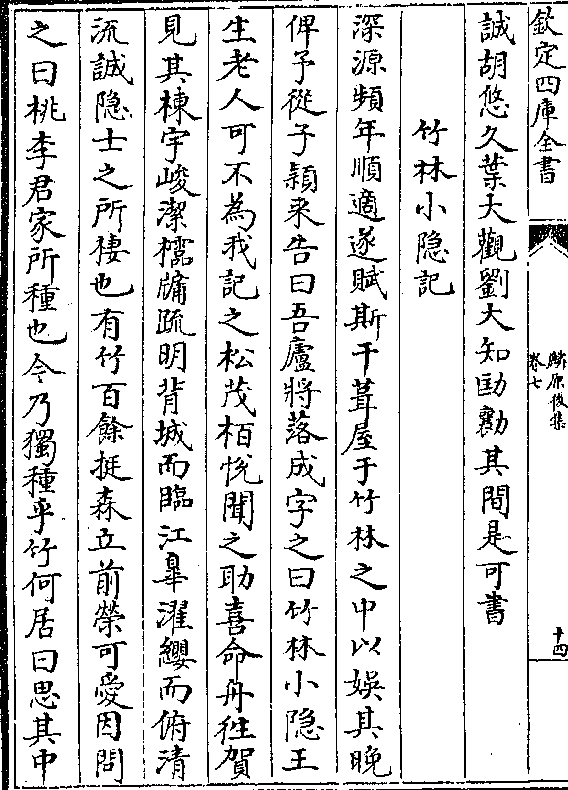 欽定四庫全書
麟原後集
卷七
十四
誠胡悠久葉大觀劉大知劻勷其間是可書
竹林小隐記
深源頻年順適遂賦斯干葺屋于竹林之中以娛其晚
俾予從子穎来告曰吾廬將落成字之曰竹林小隐王
生老人可不為我記之松茂栢悅聞之助喜命舟徃賀
見其棟宇峻潔櫺牖疏明背城而臨江臯濯纓而俯清
流誠隐士之所棲也有竹百餘挺森立前榮可愛因問
之曰桃李君家所種也今乃獨種乎竹何居曰思其中